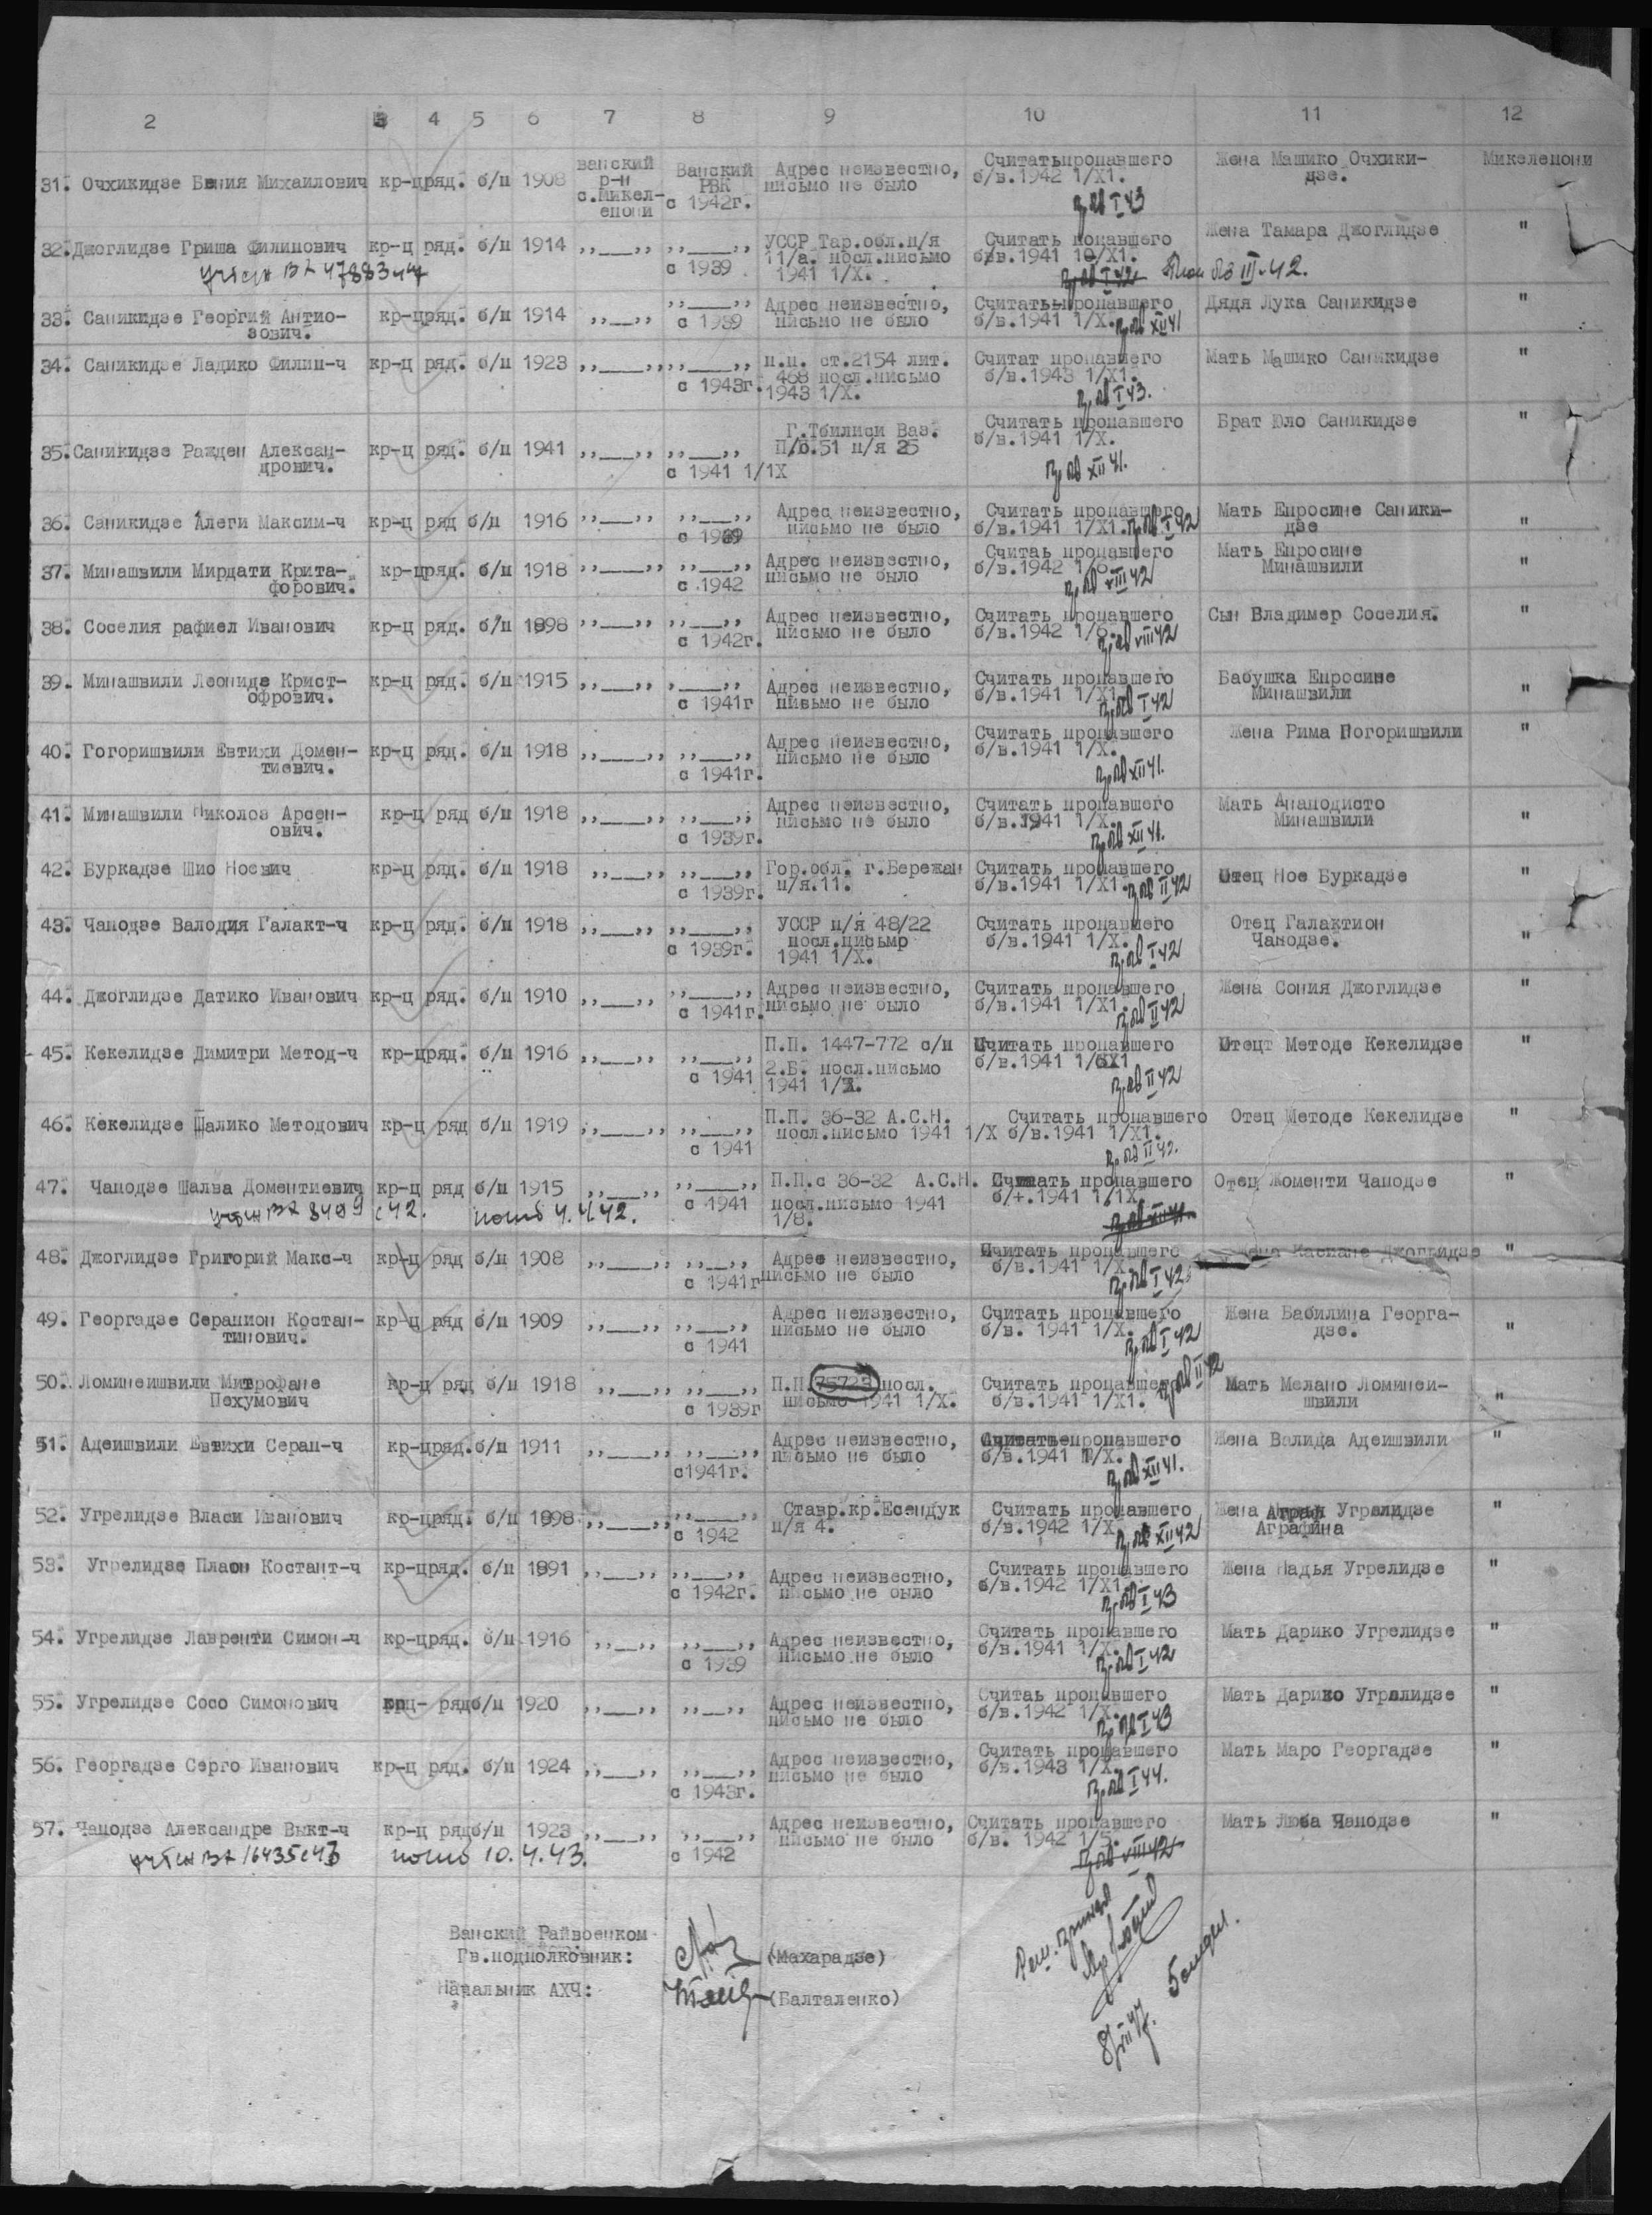 2 3 4 5 6 7 8 9 10 11 12
31. Очхикидзе Бения Михаилович кр-ц ряд. б/п 1908 ванский р-н с.Микел-епони Ванский РВК с 1942г. Адрес неизвестно, письмо не было Считатьпропавшего б/в.1942 1/X1. Жена Машико Очхики-дзе. Микелепони
32. Джоглидзе Гриша Филипович кр-ц ряд. б/п 1914 ,,___,, ,,___,, с 1939 УССР Тар.обл.п/я 11/а. посл.письмо 1941 1/X. Считать попавшего б/в.1941 10/X1. Жена Тамара Джоглидзе "
33. Саникидзе Георгий Антио-зович. кр-ц ряд. б/п 1914 ,,___,, ,,___,, с 1939 Адрес неизвестно, письмо не было Считать пропавшего б/в.1941 1/X. Дядя Лука Саникидзе "
34. Саникидзе Ладико Филип-ч кр-ц ряд. б/п 1923 ,,___,, ,,___,, с 1943г. п.п. ст.2154 лит. 468 посл.письмо 1943 1/X. Считат пропавшего б/в.1943 1/X1. Мать Машико Саникидзе "
35. Саникидзе Ражден Алексан-дрович. кр-ц ряд. б/п 1941 ,,___,, ,,___,, с 1941 1/1X Г.Тбилиси Ваз. П/б.51 п/я 25 Считать пропавшего б/в.1941 1/X. Брат Юло Саникидзе "
36. Саникидзе Алеги Максим-ч кр-ц ряд б/п 1916 ,,___,, ,,___,, с 1939 Адрес неизвестно, письмо не было Считать пропавшего б/в.1941 1/X1. Мать Епросине Саники-дзе "
37. Минашвили Мирдати Крита-форович. кр-ц ряд. б/п 1918 ,,___,, ,,___,, с 1942 Адрес неизвестно, письмо не было Считаь пропавшего б/в.1942 1/6. Мать Епросине Минашвили "
38. Соселия рафиел Иванович кр-ц ряд. б/п 1898 ,,___,, ,,___,, с 1942г. Адрес неизвестно, письмо не было Считать пропавшего б/в.1942 1/6. Сын Владимер Соселия. "
39. Минашвили Леониде Крист-офрович. кр-ц ряд. б/п 1915 ,,___,, ,___,, с 1941г Адрес неизвестно, письмо не было Считать пропавшего б/в.1941 1/X1. Бабушка Епросине Минашвили "
40. Гогоришвили Евтихи Домен-тиевич. кр-ц ряд. б/п 1918 ,,___,, ,,___,, с 1941г. Адрес неизвестно, письмо не было Считать пропавшего б/в.1941 1/X. Жена Рима Погоришвили "
41. Минашвили Николоз Арсен-ович. кр-ц ряд б/п 1918 ,,___,, ,,___,, с 1939г. Адрес неизвестно, письмо не было Считать пропавшего б/в.1941 1/X. Мать Анаподисто Минашвили "
42. Буркадзе Шио Ноевич кр-ц ряд. б/п 1918 ,,___,, ,,___,, с 1939г. Гор.обл. г.Бережан п/я.11. Считать пропавшего б/в.1941 1/X1. Отец Ное Буркадзе "
43. Чаподзе Валодия Галакт-ч кр-ц ряд. б/п 1918 ,,___,, ,,___,, с 1939г. УССР п/я 48/22 посл.письмр 1941 1/X. Считать пропавшего б/в.1941 1/X. Отец Галактион Чаподзе. "
44. Джоглидзе Датико Иванович кр-ц ряд. б/п 1910 ,,___,, ,,___,, с 1941г. Адрес неизвестно, письмо не было Считать пропавшего б/в.1941 1/X1. Жена Сония Джоглидзе "
45. Кекелидзе Димитри Метод-ч кр-ц ряд. б/п 1916 ,,___,, ,,___,, с 1941 П.П. 1447-772 с/п 2.Б. посл.письмо 1941 1/X. Считать пропавшего б/в.1941 1/X1 Отец Методе Кекелидзе "
46. Кекелидзе Шалико Методович кр-ц ряд б/п 1919 ,,___,, ,,___,, с 1941 П.П. 36-32 А.С.Н. посл.письмо 1941 1/X Считать пропавшего б/в.1941 1/X1. Отец Методе Кекелидзе "
47. Чаподзе Шалва Доментиевич кр-ц ряд б/п 1915 ,,___,, ,,___,, с 1941 П.П.с 36-32 А.С.Н. посл.письмо 1941 1/8. Считать пропавшего б/+.1941 1/1X. Отец Жоменти Чаподзе "
48. Джоглидзе Григорий Макс-ч кр-ц ряд б/п 1908 ,,___,, ,,___,, с 1941г Адрес неизвестно, письмо не было Считать пропавшего б/в.1941 1/X. Джоглидзе "
49. Георгадзе Серапион Костан-тинович. кр-ц ряд б/п 1909 ,,___,, ,,___,, с 1941 Адрес неизвестно, письмо не было Считать пропавшего б/в. 1941 1/X. Жена Бабилина Георга-дзе. "
50. Ломинеишвили Митрофане Пехумович кр-ц ряд б/п 1918 ,,___,, ,,___,, с 1939г П.П. посл. письмо 1941 1/X. Считать пропавшего б/в.1941 1/X1. Мать Мелано Ломинеи-швили "
51. Адеишвили Евтихи Серап-ч кр-ц ряд. б/п 1911 ,,___,, ,,___,, с1941г. Адрес неизвестно, письмо не было Считать пропавшего б/в.1941 1/X. Жена Валида Адеишвили "
52. Угрелидзе Власи Иванович кр-ц ряд. б/п 1898 ,,___,, ,,___,, с 1942 Ставр.кр.Есендук п/я 4. Считать пропавшего б/в.1942 1/X. Жена Угрелидзе Аграфина "
53. Угрелидзе Плаон Костант-ч кр-ц ряд. б/п 1891 ,,___,, ,,___,, с 1942г. Адрес неизвестно, письмо не было Считать пропавшего б/в.1942 1/X1. Жена Надья Угрелидзе "
54. Угрелидзе Лавренти Симон-ч кр-ц ряд. б/п 1916 ,,___,, ,,___,, с 1939 Адрес неизвестно, письмо не было Считать пропавшего б/в.1941 1/X. Мать Дарико Угрелидзе "
55. Угрелидзе Сосо Симонович крц- ряд б/п 1920 ,,___,, ,,___,, Адрес неизвестно, письмо не было Считаь пропавшего б/в.1942 1/X. Мать Дарико Угрелидзе "
56. Георгадзе Серго Иванович кр-ц ряд. б/п 1924 ,,___,, ,,___,, с 1943г. Адрес неизвестно, письмо не было Считать пропавшего б/в.1943 1/X. Мать Маро Георгадзе "
57. Чаподзе Александре Викт-ч кр-ц ряд б/п 1923 ,,___,, ,,___,, с 1942 Адрес неизвестно, письмо не было Считать пропавшего б/в. 1942 1/5. Мать Люба Чаподзе "
10.4.43.
Ванский Райвоенком
Гв.подполковник: (Махарадзе)
Начальник АХЧ: (Балталенко)